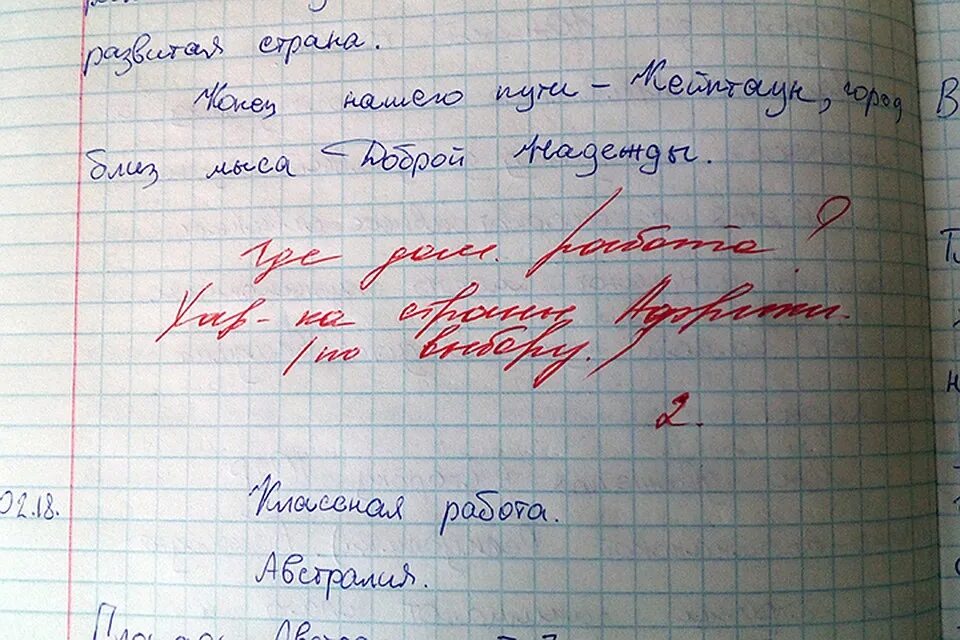 развитая страна.
Конец нашего пути – Кейптаун, город
близ мыса Доброй Надежды.
Где дом. работа?
Хар-ка страны Африки.
(по выбору.)
2.
02.18.
Классная работа.
Австралия.
В